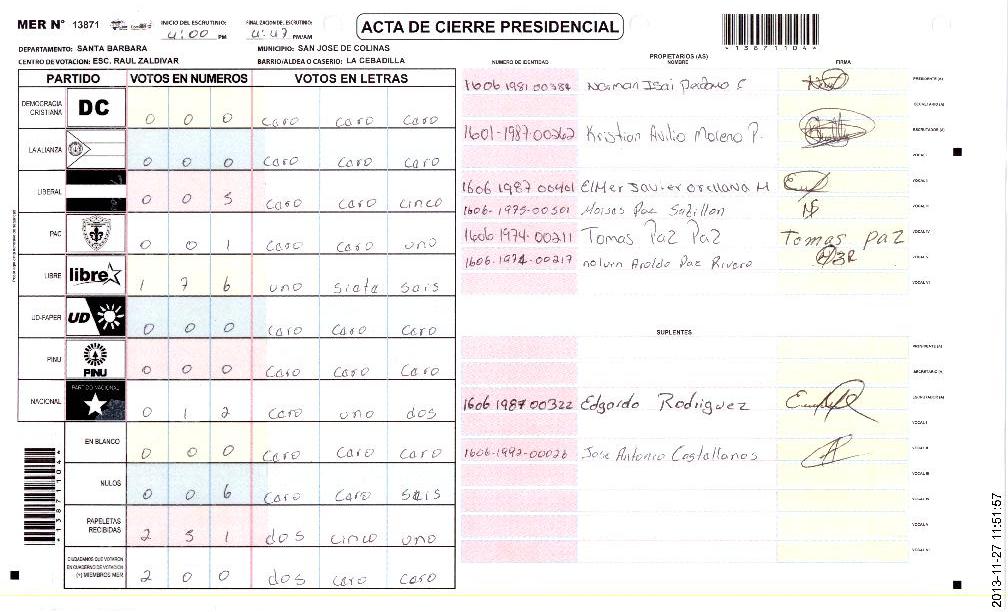 MER Nº 13871 INICIO DEL ESCRUTINIO: 4:00 PM FINALIZACION DEL ESCRUTINIO: 4:47 PM/AM ACTA DE CIERRE PRESIDENCIAL
*13871104*
DEPARTAMENTO: SANTA BARBARA MUNICIPIO: SAN JOSE DE COLINAS
CENTRO DE VOTACION: ESC. RAUL ZALDIVAR BARRIO/ALDEA O CASERIO: LA CEBADILLA
PARTIDO VOTOS EN NUMEROS VOTOS EN LETRAS
DEMOCRACIA CRISTIANA DC 0 0 0 caro caro caro
LA ALIANZA 0 0 0 caro caro caro
LIBERAL 0 0 5 caro caro cinco
PAC 0 0 1 caro caro uno
LIBRE libre 1 7 6 uno siete sais
UD-FAPER UD 0 0 0 caro caro caro
PINU PINU 0 0 0 caro caro caro
NACIONAL PARTIDO NACIONAL 0 1 2 caro uno dos
EN BLANCO 0 0 0 caro caro caro
NULOS 0 0 6 caro caro sais
PAPELETAS RECIBIDAS 2 5 1 dos cinco uno
CIUDADANOS QUE VOTARON EN CUADERNO DE VOTACION (+) MIEMBROS MER 2 0 0 dos caro caro
*13871104*
PROPIETARIOS (AS)
NUMERO DE IDENTIDAD NOMBRE FIRMA
1606 1981 00384 Norman Isai Perdomo C PRESIDENTE (A)
SECRETARIO (A)
1601-1987-00262 Kristian Avilio Moreno P. ESCRUTADOR (A)
VOCAL I
1606 1987 00401 ElMer Javier orellana M VOCAL II
1606-1975-00501 Moises Paz VOCAL III
1606 1974-00211 Tomas Paz Paz Tomas paz VOCAL IV
1606-1974-00217 nolvin Aroldo Paz Rivera VOCAL V
VOCAL VI
SUPLENTES
PRESIDENTE (A)
SECRETARIO (A)
1606 1987 00322 Edgardo Rodriguez ESCRUTADOR (A)
VOCAL I
1606-1992-00026 Jose Antonio Castellanos VOCAL II
VOCAL III
VOCAL IV
VOCAL V
VOCAL VI
2013-11-27 11:51:57